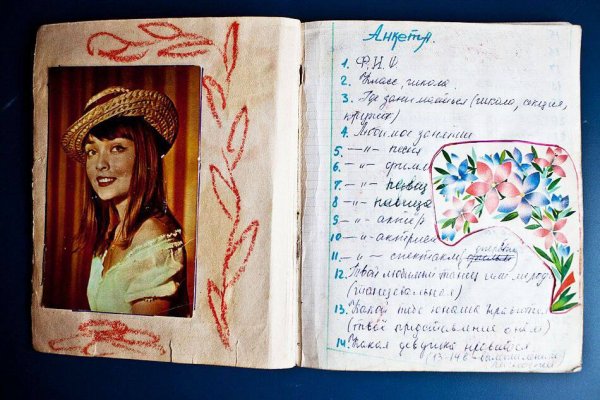 Анкета.
1. Ф.И.О
2. Класс, школа
3. Где занимаешься (школа, секция,
кружок)
4. Любимое занятие
5 — „ — песня
6. — „ — фильм
7. — „ — певец
8 — „ — певица
9. — „ — актёр
10 — „ — актриса
11. — „ — спектакль
12. Твой любимый танец или мелодия
(танцевальная)
13. Какой тебе юноша нравится
(твоё представление о нём)
14. Какая девушка нравится
(13-14